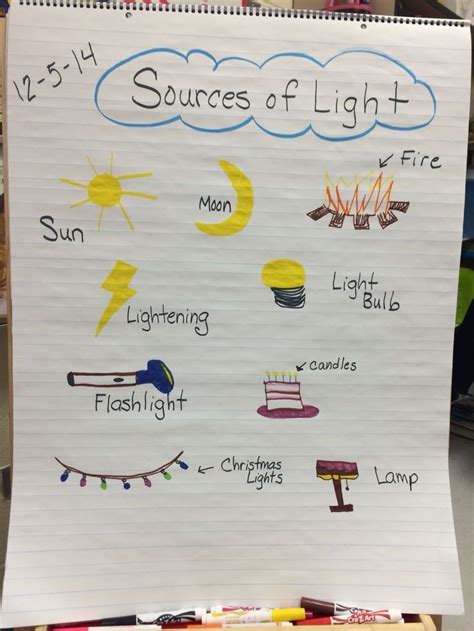 12-5-14
Sources of Light
Fire
Moon
Sun
Light
Bulb
Lightening
Candles
Flashlight
Christmas
Lights
Lamp